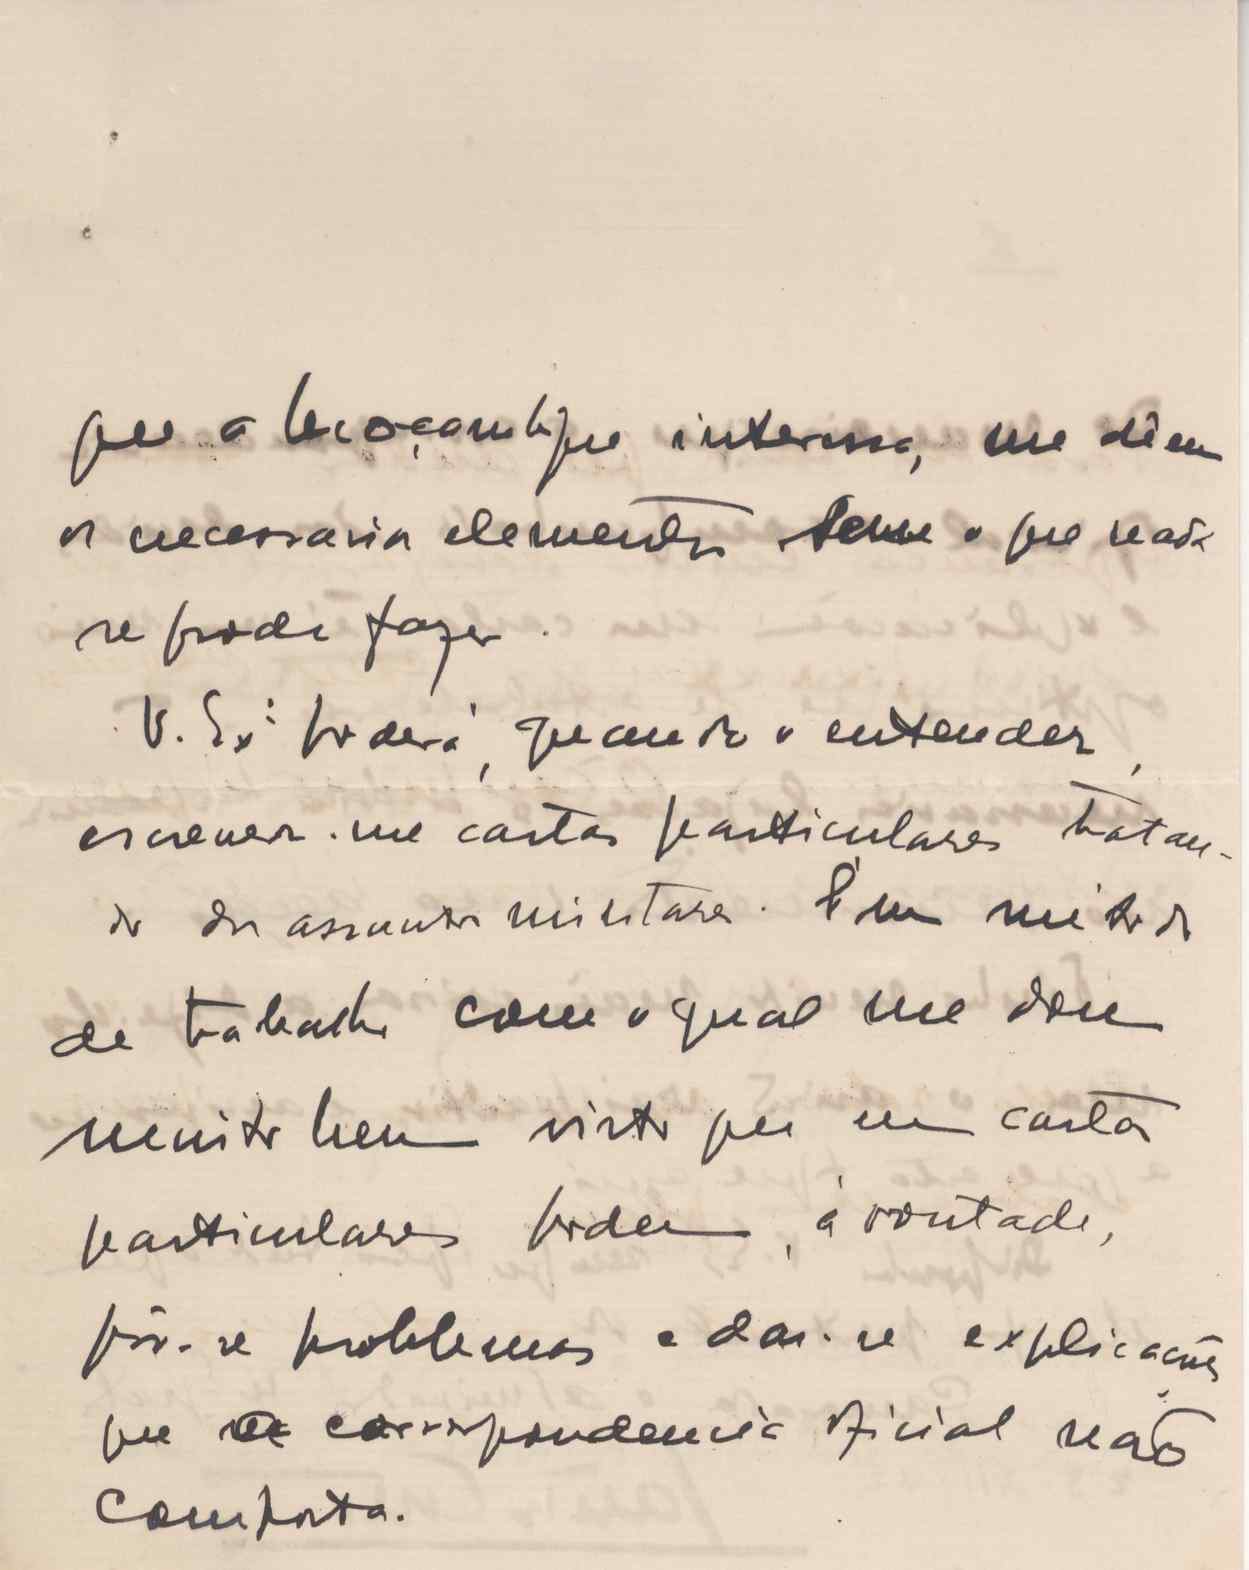 que a Moçambique interessa, me dêem
os necessarios elementos sem o que nada
se pode fazer.
V. Exª poderá, quando o entender,
escrever-me cartas particulares tratan-
do dos assuntos militares. É um método
de trabalho com o qual me dou
muito bem visto que em cartas
particulares podem, á vontade,
pôr-se problemas e dar-se explicações
que a correspondencia oficial não
comporta.